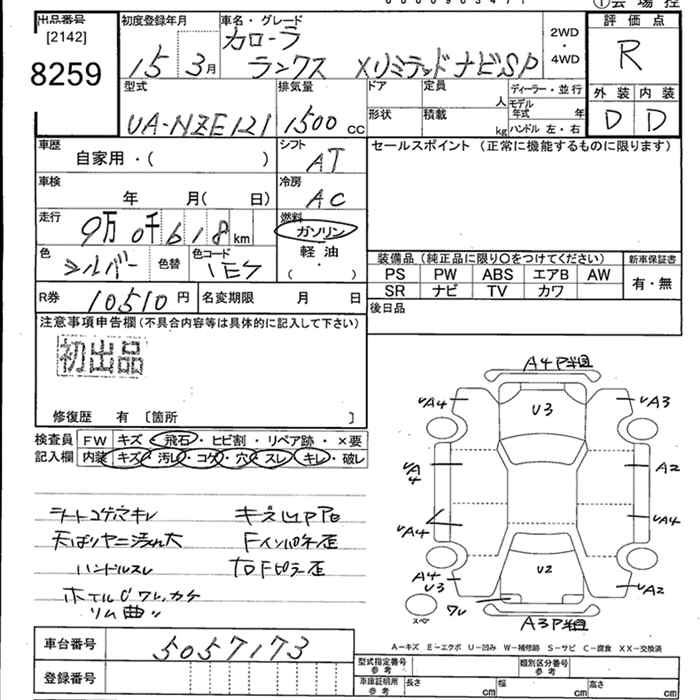 出品番号
[2142]
8259
初度登録年月
15 3月
車名・グレード
カローラ
ランクス Xリミテッドナビ SP
2WD
・
4WD
評価点
R
外装 内装
D D
型式
UA-NZE121
排気量
1500 cc
ドア
定員
人
ディーラー・並行
モデル
年式 年
形状
積載
kg
ハンドル 左・右
車歴
自家用・( )
シフト
AT
セールスポイント (正常に機能するものに限ります)
車検
年 月( 日)
冷房
AC
走行
9万0千618km
燃料
ガソリン
軽油
( ・ )
色
シルバー
色替
色コード
1E7
装備品(純正品に限り○をつけてください)
新車保証書
PS PW ABS エアB AW
SR ナビ TV カワ
有・無
R券
10510円
名変期限 月 日
後日品
注意事項申告欄(不具合内容等は具体的に記入して下さい)
初出品
修復歴 有 〔箇所 〕
検査員 FW キズ・飛石・ヒビ割・リペア跡・×要
記入欄 内装 キズ・汚レ・コゲ・穴・スレ・キレ・破レ
シートコゲ穴キレ
天ばりヤニ汚れ大
ハンドルスレ
リム曲り
A4 P
A4
U3
A3
A4
A2
A4
A4
A4
U3
U2
A2
スペア
ワレ
A3 P
A-キズ E-エクボ U-凹み W-補修跡 S-サビ C-腐食 XX-交換済
車台番号
5057173
登録番号
型式指定番号
参考
類別区分番号
参考
車庫証明用
参考
長さ
cm
幅
cm
高さ
cm